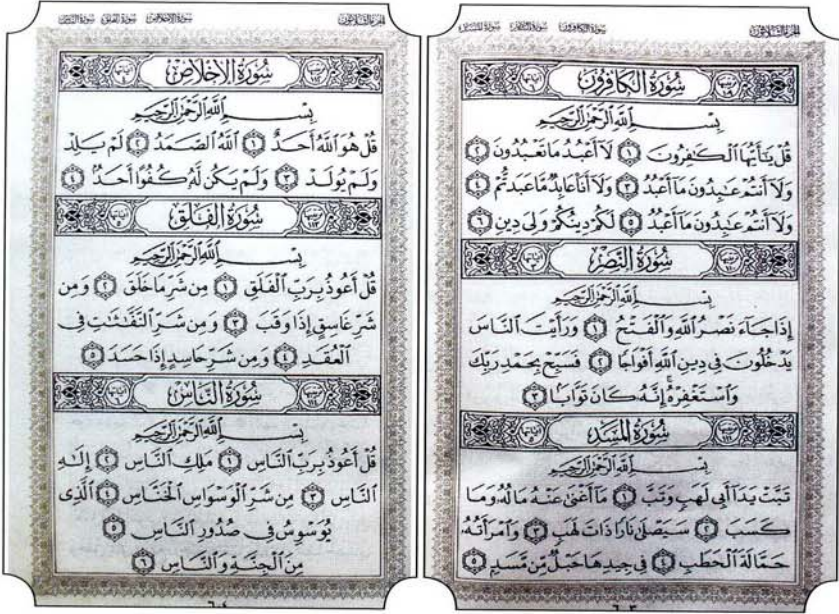 الجزء الثلاثون سورة الكافرون سورة النصر سورة المسد
سُورَةُ الكَافِرُونَ
بِسْمِ اللَّهِ الرَّحْمَٰنِ الرَّحِيمِ
قُلْ يَٰٓأَيُّهَا ٱلْكَٰفِرُونَ ١ لَآ أَعْبُدُ مَا تَعْبُدُونَ ٢
وَلَآ أَنتُمْ عَٰبِدُونَ مَآ أَعْبُدُ ٣ وَلَآ أَنَا۠ عَابِدٌ مَّا عَبَدتُّمْ ٤
وَلَآ أَنتُمْ عَٰبِدُونَ مَآ أَعْبُدُ ٥ لَكُمْ دِينُكُمْ وَلِىَ دِينِ ٦
سُورَةُ النَّصْرِ
بِسْمِ اللَّهِ الرَّحْمَٰنِ الرَّحِيمِ
إِذَا جَآءَ نَصْرُ ٱللَّهِ وَٱلْفَتْحُ ١ وَرَأَيْتَ ٱلنَّاسَ
يَدْخُلُونَ فِى دِينِ ٱللَّهِ أَفْوَاجًا ٢ فَسَبِّحْ بِحَمْدِ رَبِّكَ
وَٱسْتَغْفِرْهُ ۚ إِنَّهُۥ كَانَ تَوَّابًۢا ٣
سُورَةُ المَسَدِ
بِسْمِ اللَّهِ الرَّحْمَٰنِ الرَّحِيمِ
تَبَّتْ يَدَآ أَبِى لَهَبٍ وَتَبَّ ١ مَآ أَغْنَىٰ عَنْهُ مَالُهُۥ وَمَا
كَسَبَ ٢ سَيَصْلَىٰ نَارًا ذَاتَ لَهَبٍ ٣ وَٱمْرَأَتُهُۥ
حَمَّالَةَ ٱلْحَطَبِ ٤ فِى جِيدِهَا حَبْلٌ مِّن مَّسَدٍۭ ٥
٦٠٣
الجزء الثلاثون سورة الإخلاص سورة الفلق سورة الناس
سُورَةُ الإِخْلَاصِ
بِسْمِ اللَّهِ الرَّحْمَٰنِ الرَّحِيمِ
قُلْ هُوَ ٱللَّهُ أَحَدٌ ١ ٱللَّهُ ٱلصَّمَدُ ٢ لَمْ يَلِدْ
وَلَمْ يُولَدْ ٣ وَلَمْ يَكُن لَّهُۥ كُفُوًا أَحَدٌۢ ٤
سُورَةُ الفَلَقِ
بِسْمِ اللَّهِ الرَّحْمَٰنِ الرَّحِيمِ
قُلْ أَعُوذُ بِرَبِّ ٱلْفَلَقِ ١ مِن شَرِّ مَا خَلَقَ ٢ وَمِن
شَرِّ غَاسِقٍ إِذَا وَقَبَ ٣ وَمِن شَرِّ ٱلنَّفَّٰثَٰتِ فِى
ٱلْعُقَدِ ٤ وَمِن شَرِّ حَاسِدٍ إِذَا حَسَدَ ٥
سُورَةُ النَّاسِ
بِسْمِ اللَّهِ الرَّحْمَٰنِ الرَّحِيمِ
قُلْ أَعُوذُ بِرَبِّ ٱلنَّاسِ ١ مَلِكِ ٱلنَّاسِ ٢ إِلَٰهِ
ٱلنَّاسِ ٣ مِن شَرِّ ٱلْوَسْوَاسِ ٱلْخَنَّاسِ ٤ ٱلَّذِى
يُوَسْوِسُ فِى صُدُورِ ٱلنَّاسِ ٥
مِنَ ٱلْجِنَّةِ وَٱلنَّاسِ ٦
٦٠٤